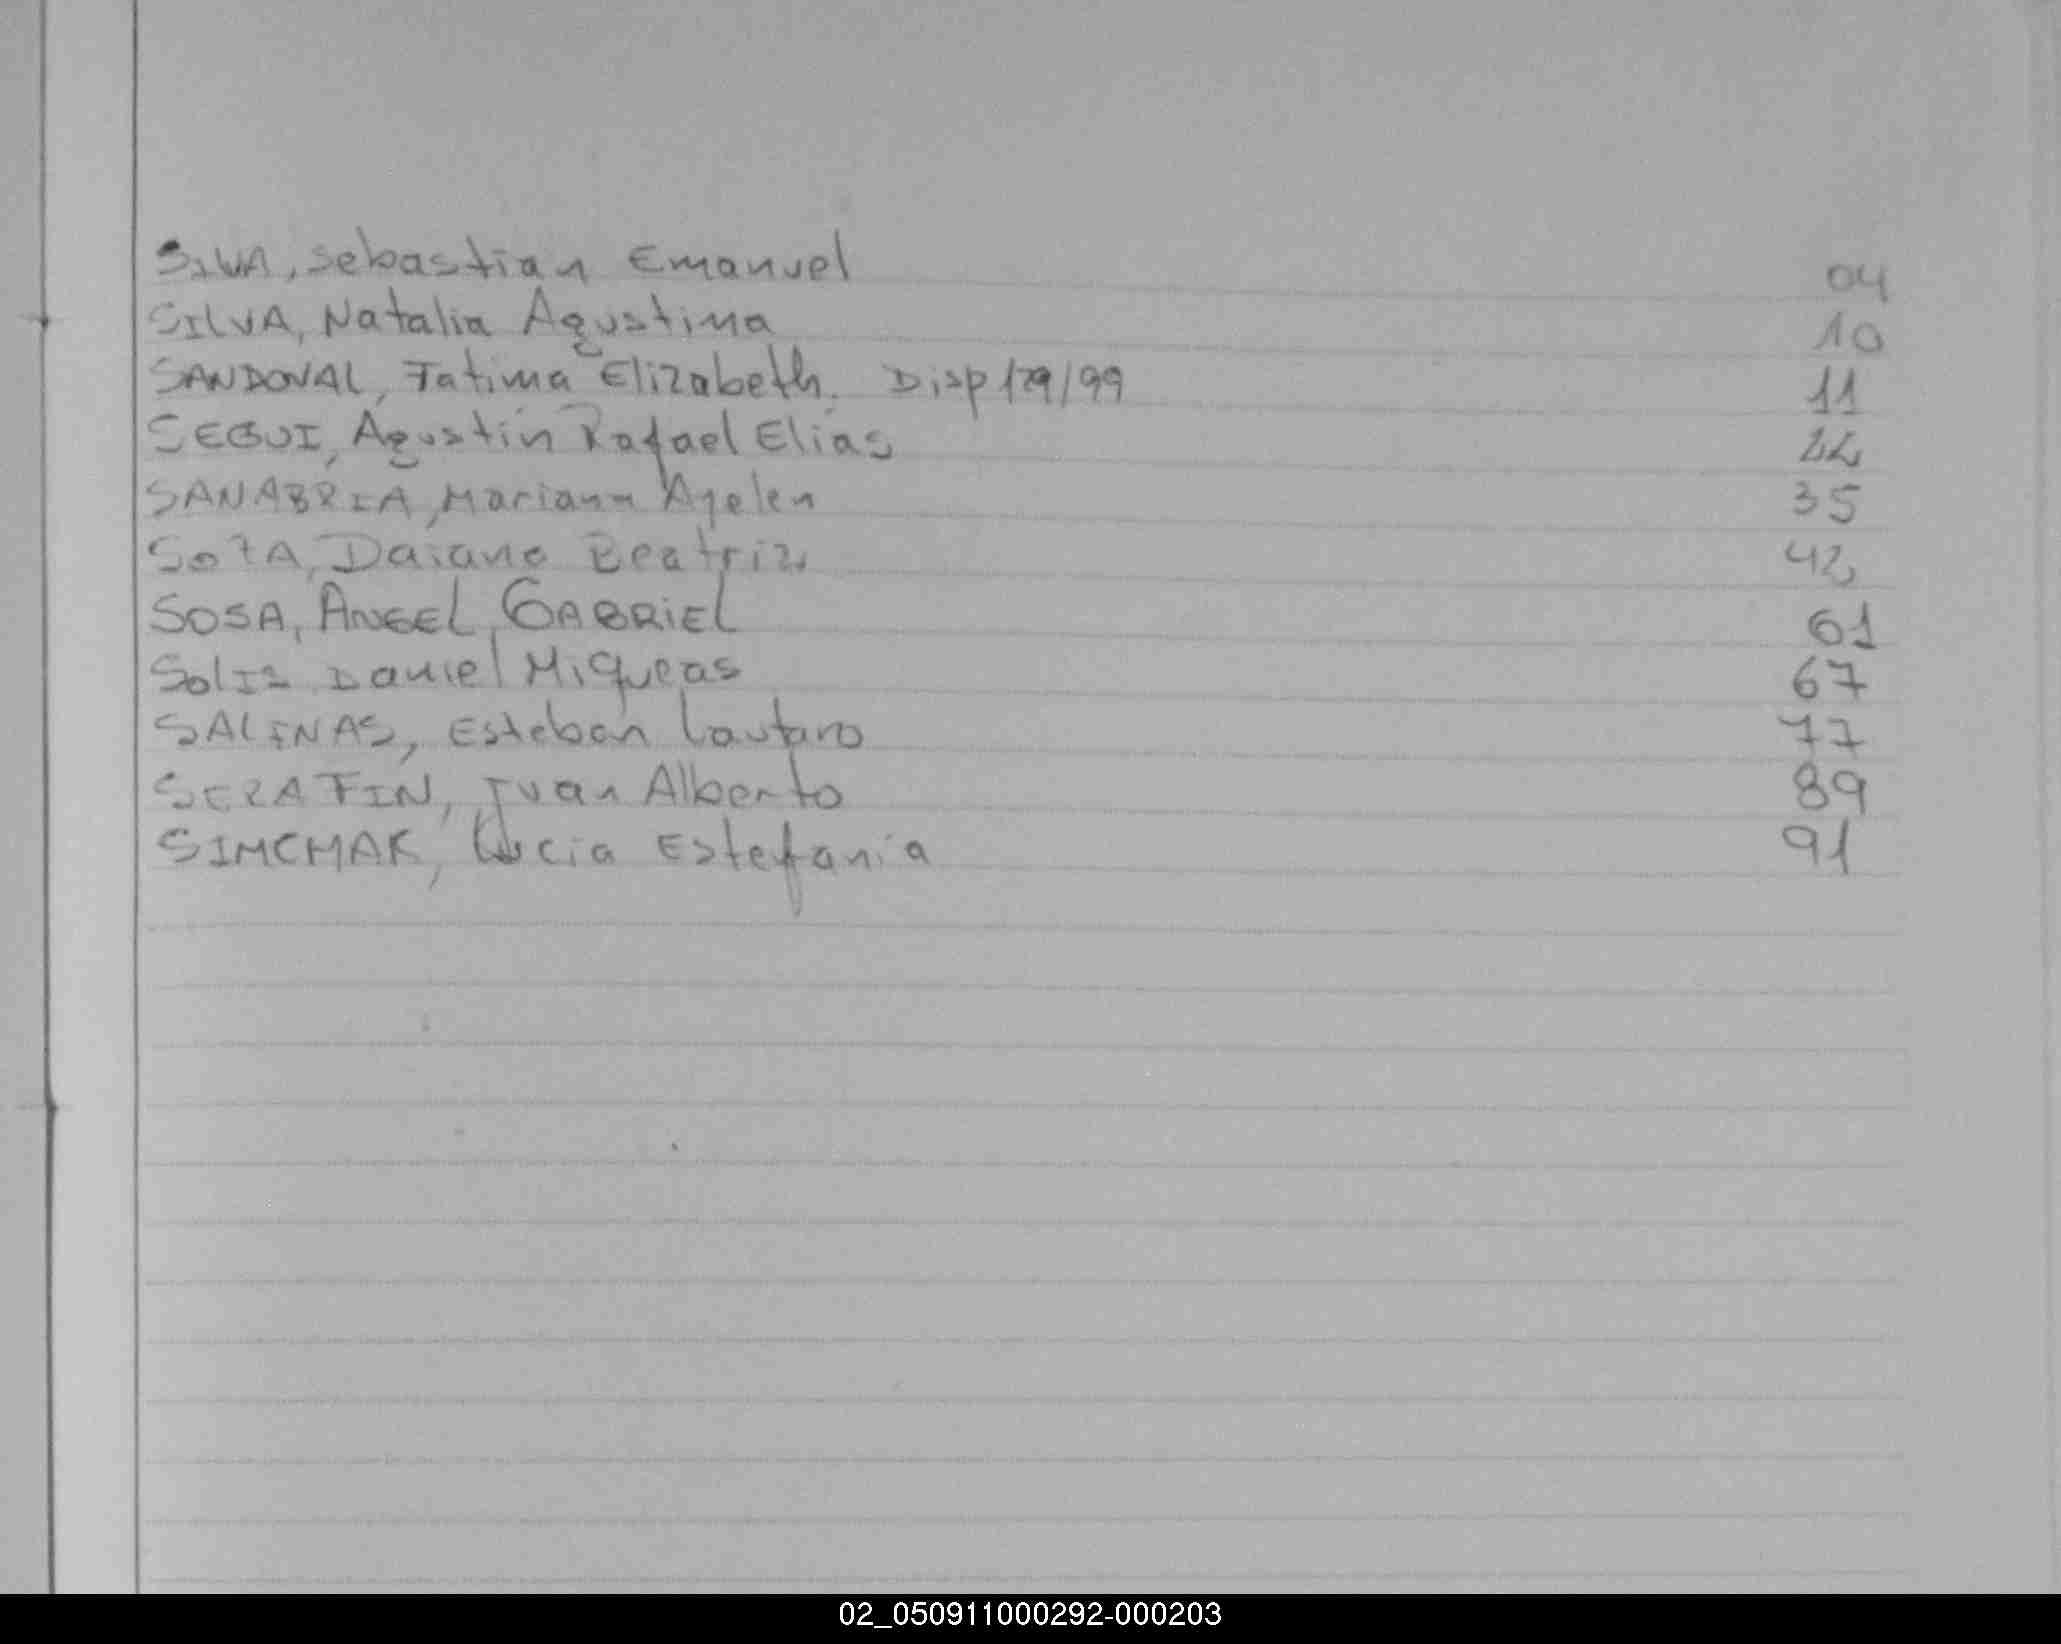 SILVA, Sebastian Emanuel 04
SILVA, Natalia Agustina 10
SANDOVAL, Fatima Elizabeth. Disp 179/99 11
SEGUI, Agustin Rafael Elias 22
SANABRIA, Mariana Ayelen 35
SOZA, Daiana Beatriz 42
SOSA, ANGEL GABRIEL 61
SolIs Daniel Miqueas 67
SALINAS, Esteban Lautaro 77
SERAFIN, Ivan Alberto 89
SIMCHAK, Lucia Estefania 91
02_050911000292-000203